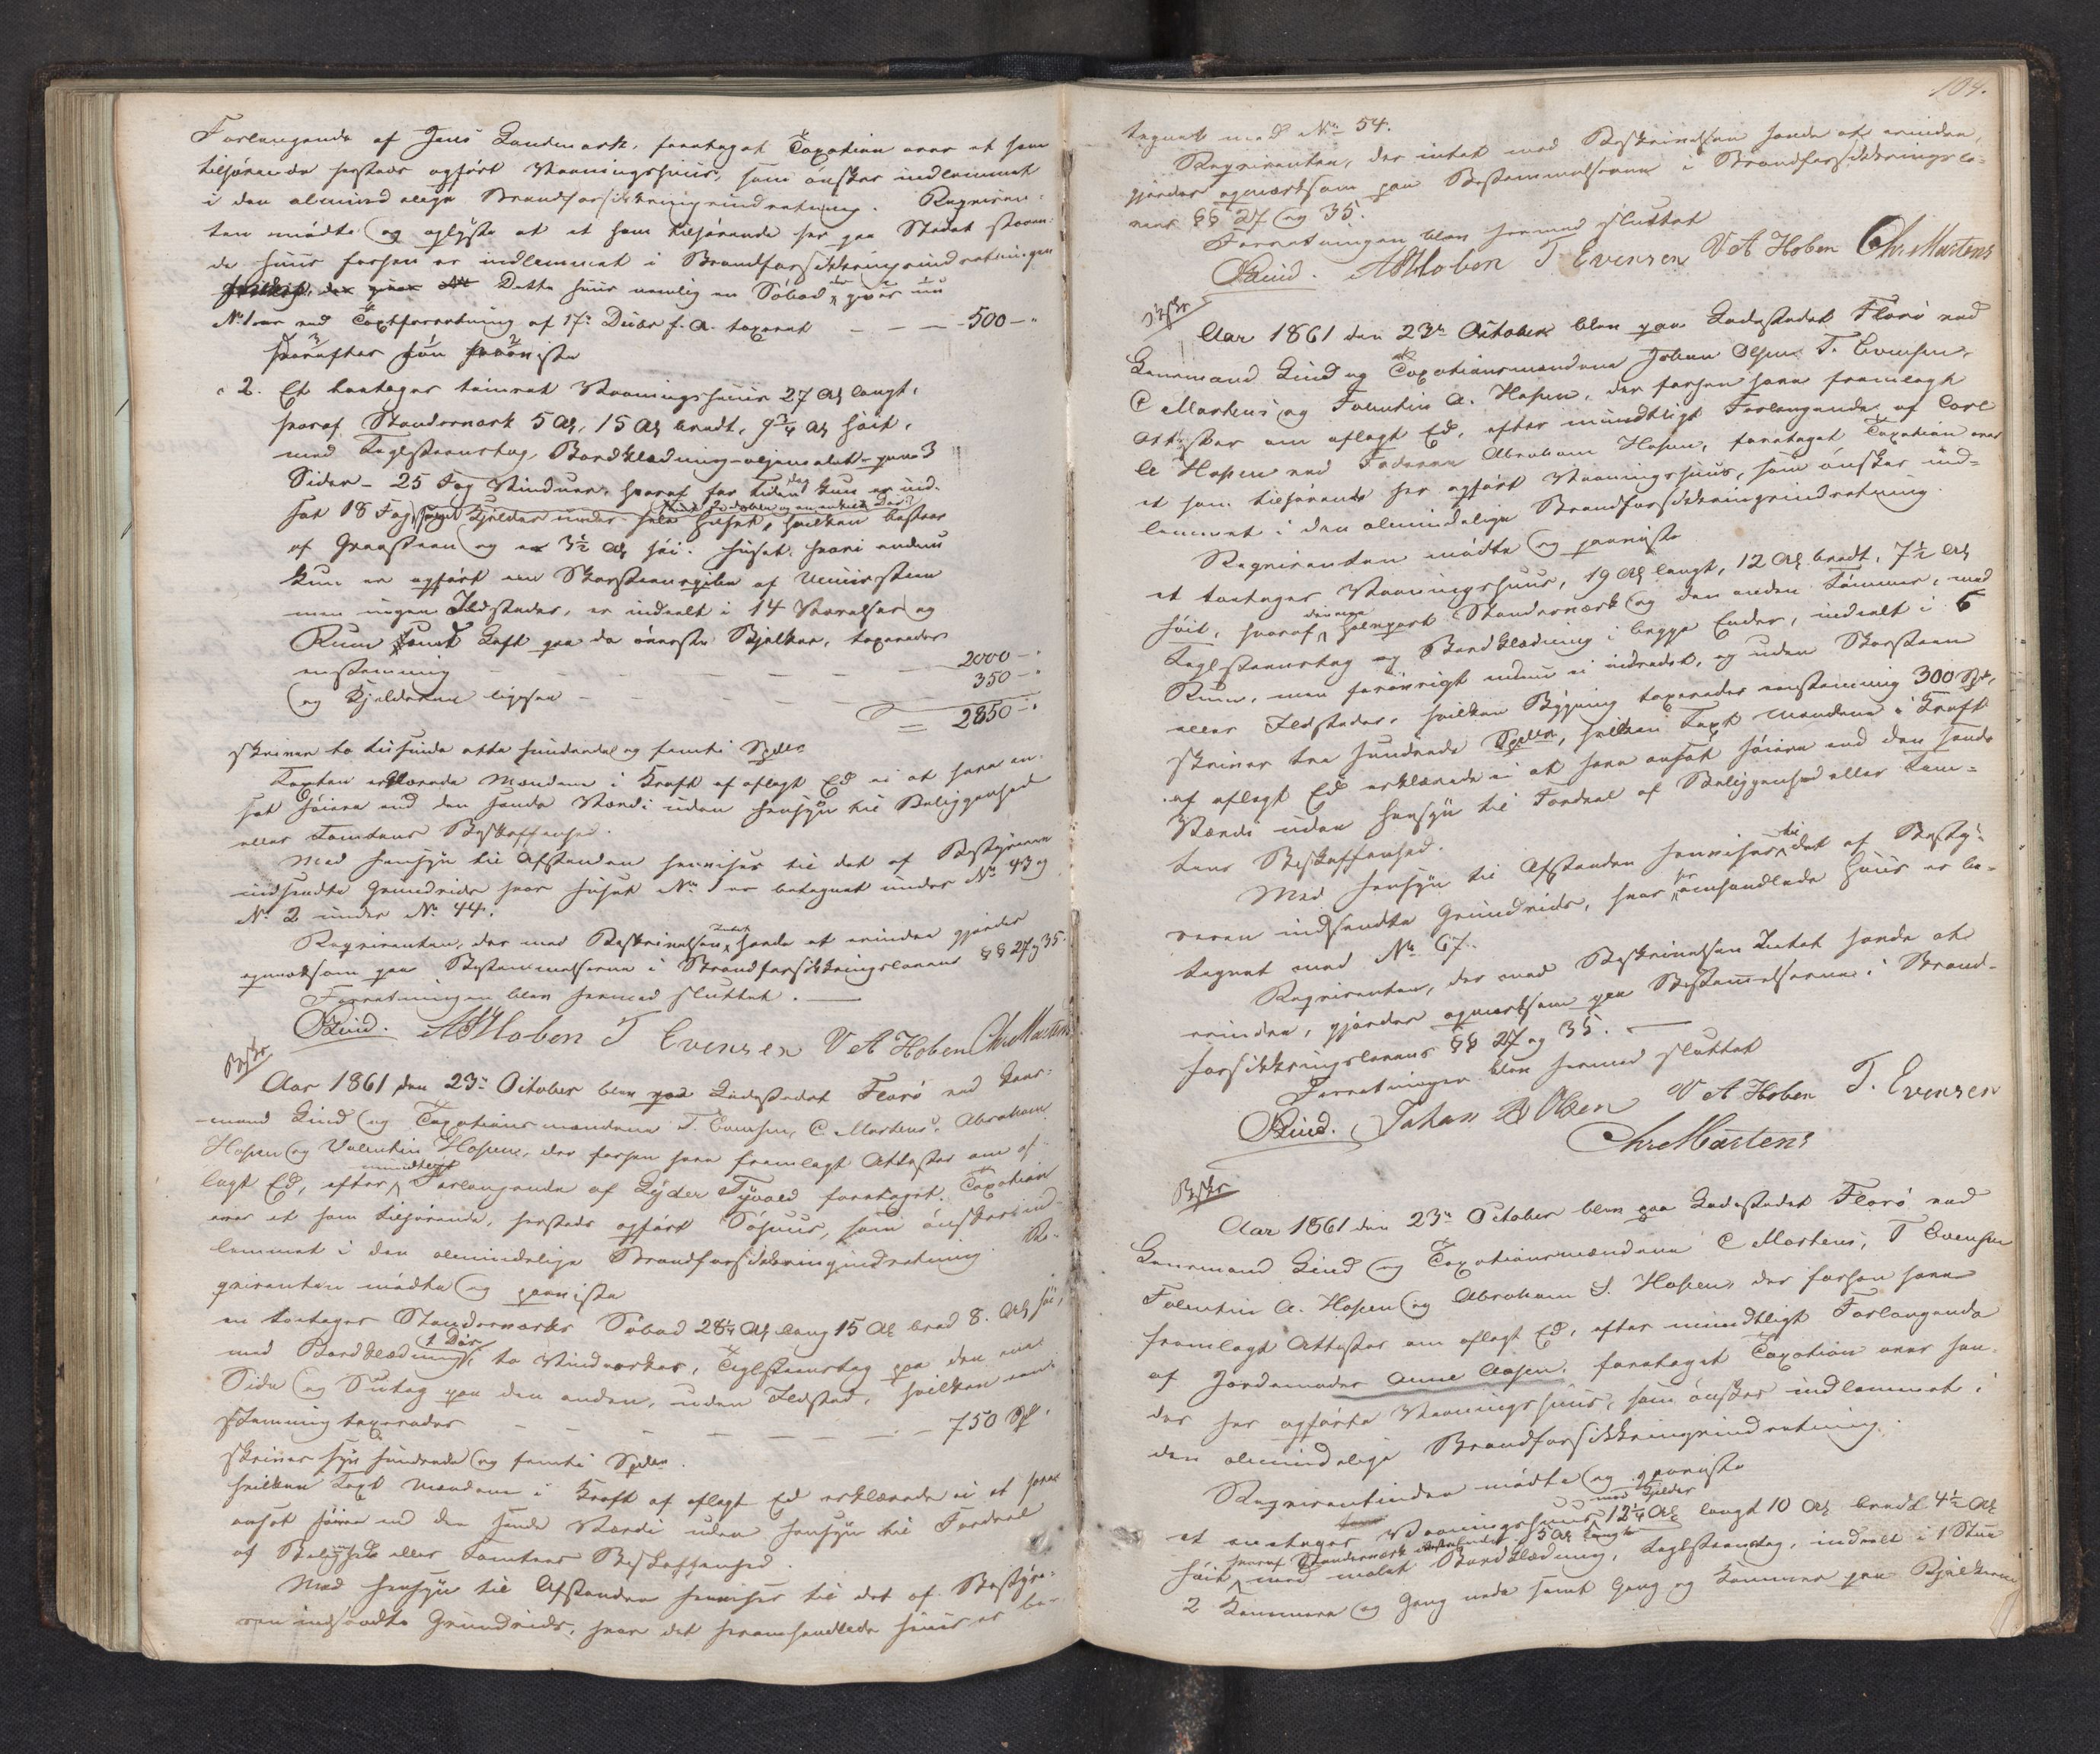 Forlangende af Jens Landmark, foretaget Taxation over et ham
tilhørende hersteds opført Vaaningshuus, som ønskes indlemmet
i den almindelige Brandforsikkringsindretning. Reqviren-
ten mødte og oplyste at et ham tilhørende her paa Stedet staaen-
de Huus forhen er indlemmet i Brandforsikkringsindretningen
Dette Huus nemlig en Søbod, der
No 1 er ved Taxtforretning af 17de Decbr f. A. taxeret — — — 500 — "
Derefter paaviste
" 2. Et toetages tømret Vaaningshuus 27 Al. langt,
hvoraf Standerværk 5 Al, 15 Al bredt, 9¾ Al høit,
med Teglsteenstag, Bordklædning - oljemalet - paa 3
Sider - 25 Fag Vinduer, hvoraf for Tiden kun er ind-
sat 18 Fag, samt Kjelder under hele Huset, hvilken bestaaer
af Graasteen og er 3½ Al høi. Huset, hvori endnu
kun er opført en Skorsteenspibe af Muursteen
men ingen Ildsteder, er inddeelt i 14 Værelser og
Rum samt Loft paa de øverste Bjelker, taxeredes
eenstemmig — — — — — — 2000 — "
og Kjelderen ligesaa — — — — — 350 — "
= 2850 — "
skriver to tusinde otte hundrede og femti Spdlr
Taxten erklærede Mændene i Kraft af aflagt Ed ei at have an-
sat høiere end den sande Værdi uden Hensyn til Beliggenhed
eller Tomtens Beskaffenhed.
Med Hensyn til Afstanden henvises til det af Bestyreren
indsendte Grundrids hvor Huset No 1 er betegnet under No 43 og
No 2 under No 44.
Reqvirenten, der mod Beskrivelsen Intet havde at erindre gjordes
opmærksom paa Bestemmelserne i Brandforsikkringslovens §§ 27 og 35.
Forretningen blev hermed sluttet. —
Lind. A S Hoben T Evensen V A Hoben Chr Martens
Beskr
Aar 1861 den 23de October blev paa Ladestedet Florø ved Lens-
mand Lind og Taxationsmændene T. Evensen, C. Martens, Abraham
Hopen og Valentin Hopen, der forhen have fremlagt Attester om af-
lagt Ed, efter mundtligt Forlangende af Lyder foretaget Taxation
over et ham tilhørende, hersteds opført Søhuus, som ønskes ind-
lemmet i den almindelige Brandforsikkringsindretning. Re-
qvirenten mødte og paaviste
en toetages Standerværks Søbod 28¼ Al lang 15 Al bred 8. Al høi,
med Bordklædning, 1 Dør, to Vindusker, Teglsteenstag paa den ene
Side og Sutag paa den anden, uden Ildsted, hvilken een-
stemmig taxeredes — — — — — 750 Spd.
skriver syv hundrede og femti Spdlr.
hvilken Taxt Mændene i Kraft af aflagt Ed erklærede ei at have
ansat høiere end den sande Værdi uden Hensyn til Fordeel
af Beliggenhed eller Tomtens Beskaffenhed.
Med Hensyn til Afstanden henvises til det af Bestyre-
ren indsendte Grundrids, hvor det heromhandlede Huus er be-
104.
tegnet med No 54.
Reqvirenten, der intet mod Beskrivelsen havde at erindre,
gjordes opmærksom paa Bestemmelserne i Brandforsikkringslo-
vens §§ 27 og 35.
Forretningen blev hermed sluttet
Lind. A S Hoben T Evensen V A Hoben Chr. Martens
Beskr
Aar 1861 den 23de October blev paa Ladestedet Florø ved
Lensmand Lind og Taxationsmændene Johan Olsen, T. Evensen,
C Martens og Falentin A. Hopen, der forhen have fremlagt
Attester om aflagt Ed, efter mundtligt Forlangende af Carl
A Hopen ved Faderen Abraham Hopen, foretaget Taxation over
et ham tilhørende her opført Vaaningshuus, som ønskes ind-
lemmet i den almindelige Brandforsikkringsindretning.
Reqvirenten mødte og paaviste
et toetages Vaaningshuus, 19 Al langt, 12 Al. bredt, 7½ Al
høit, hvoraf den ene Halvpart Standerværk og den anden Tømmer, med
Teglsteenstag og Bordklædning i begge Ender, inddelt i 6
Rum, men forøvrigt endnu ei indredet, og uden Skorsteen
eller Ildsteder, hvilken Bygning taxeredes eenstemmig 300 Spd,
skriver tre hundrede Spdlr, hvilken Taxt Mændene i Kraft
af aflagt Ed erklærede ei at have ansat høiere end den sande
Værdi uden Hensyn til Fordeel af Beliggenhed eller Tom-
tens Beskaffenhed.
Med Hensyn til Afstanden henvises til det af Besty-
reren indsendte Grundrids, hvor omhandlede Huus er be-
tegnet med No 67.
Reqvirenten, der mod Beskrivelsen Intet havde at
erindre, gjordes opmærksom paa Bestemmelserne i Brand-
forsikkringslovens §§ 27 og 35. —
Forretningen blev hermed sluttet
Lind. Johan Olsen V A Hoben T. Evensen
Chr Martens
Beskr
Aar 1861 den 23de October blev paa Ladestedet Florø ved
Lensmand Lind og Taxationsmændene C Martens, T Evensen
Falentin A. Hopen og Abraham S. Hopen, der forhen have
fremlagt Attester om aflagt Ed, efter mundtligt Forlangende
af Jordemoder Anne Aasen, foretaget Taxation over hen-
des her opførte Vaaningshuus, som ønskes indlemmet i
den almindelige Brandforsikkringsindretning.
Reqvirentinden mødte og paaviste
et eenetages Vaaningshuus med Kjelder 12¼ Al langt 10 Al bredt 4½ Al
høit, hvoraf Standerværk 5 Al langt, med malet Bordklædning, Teglsteenstag, inddeelt i 1 Stue
2 Kammere og Gang nede samt Gang og Kammer paa Bjelkerne